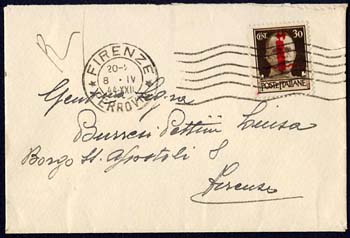 R
FIRENZE
20-
8 · IV
44·XXII
FERROVIA
CENT 30
POSTE ITALIANE
Burresi Pettini Luisa
Borgo SS. Apostoli 8
Firenze